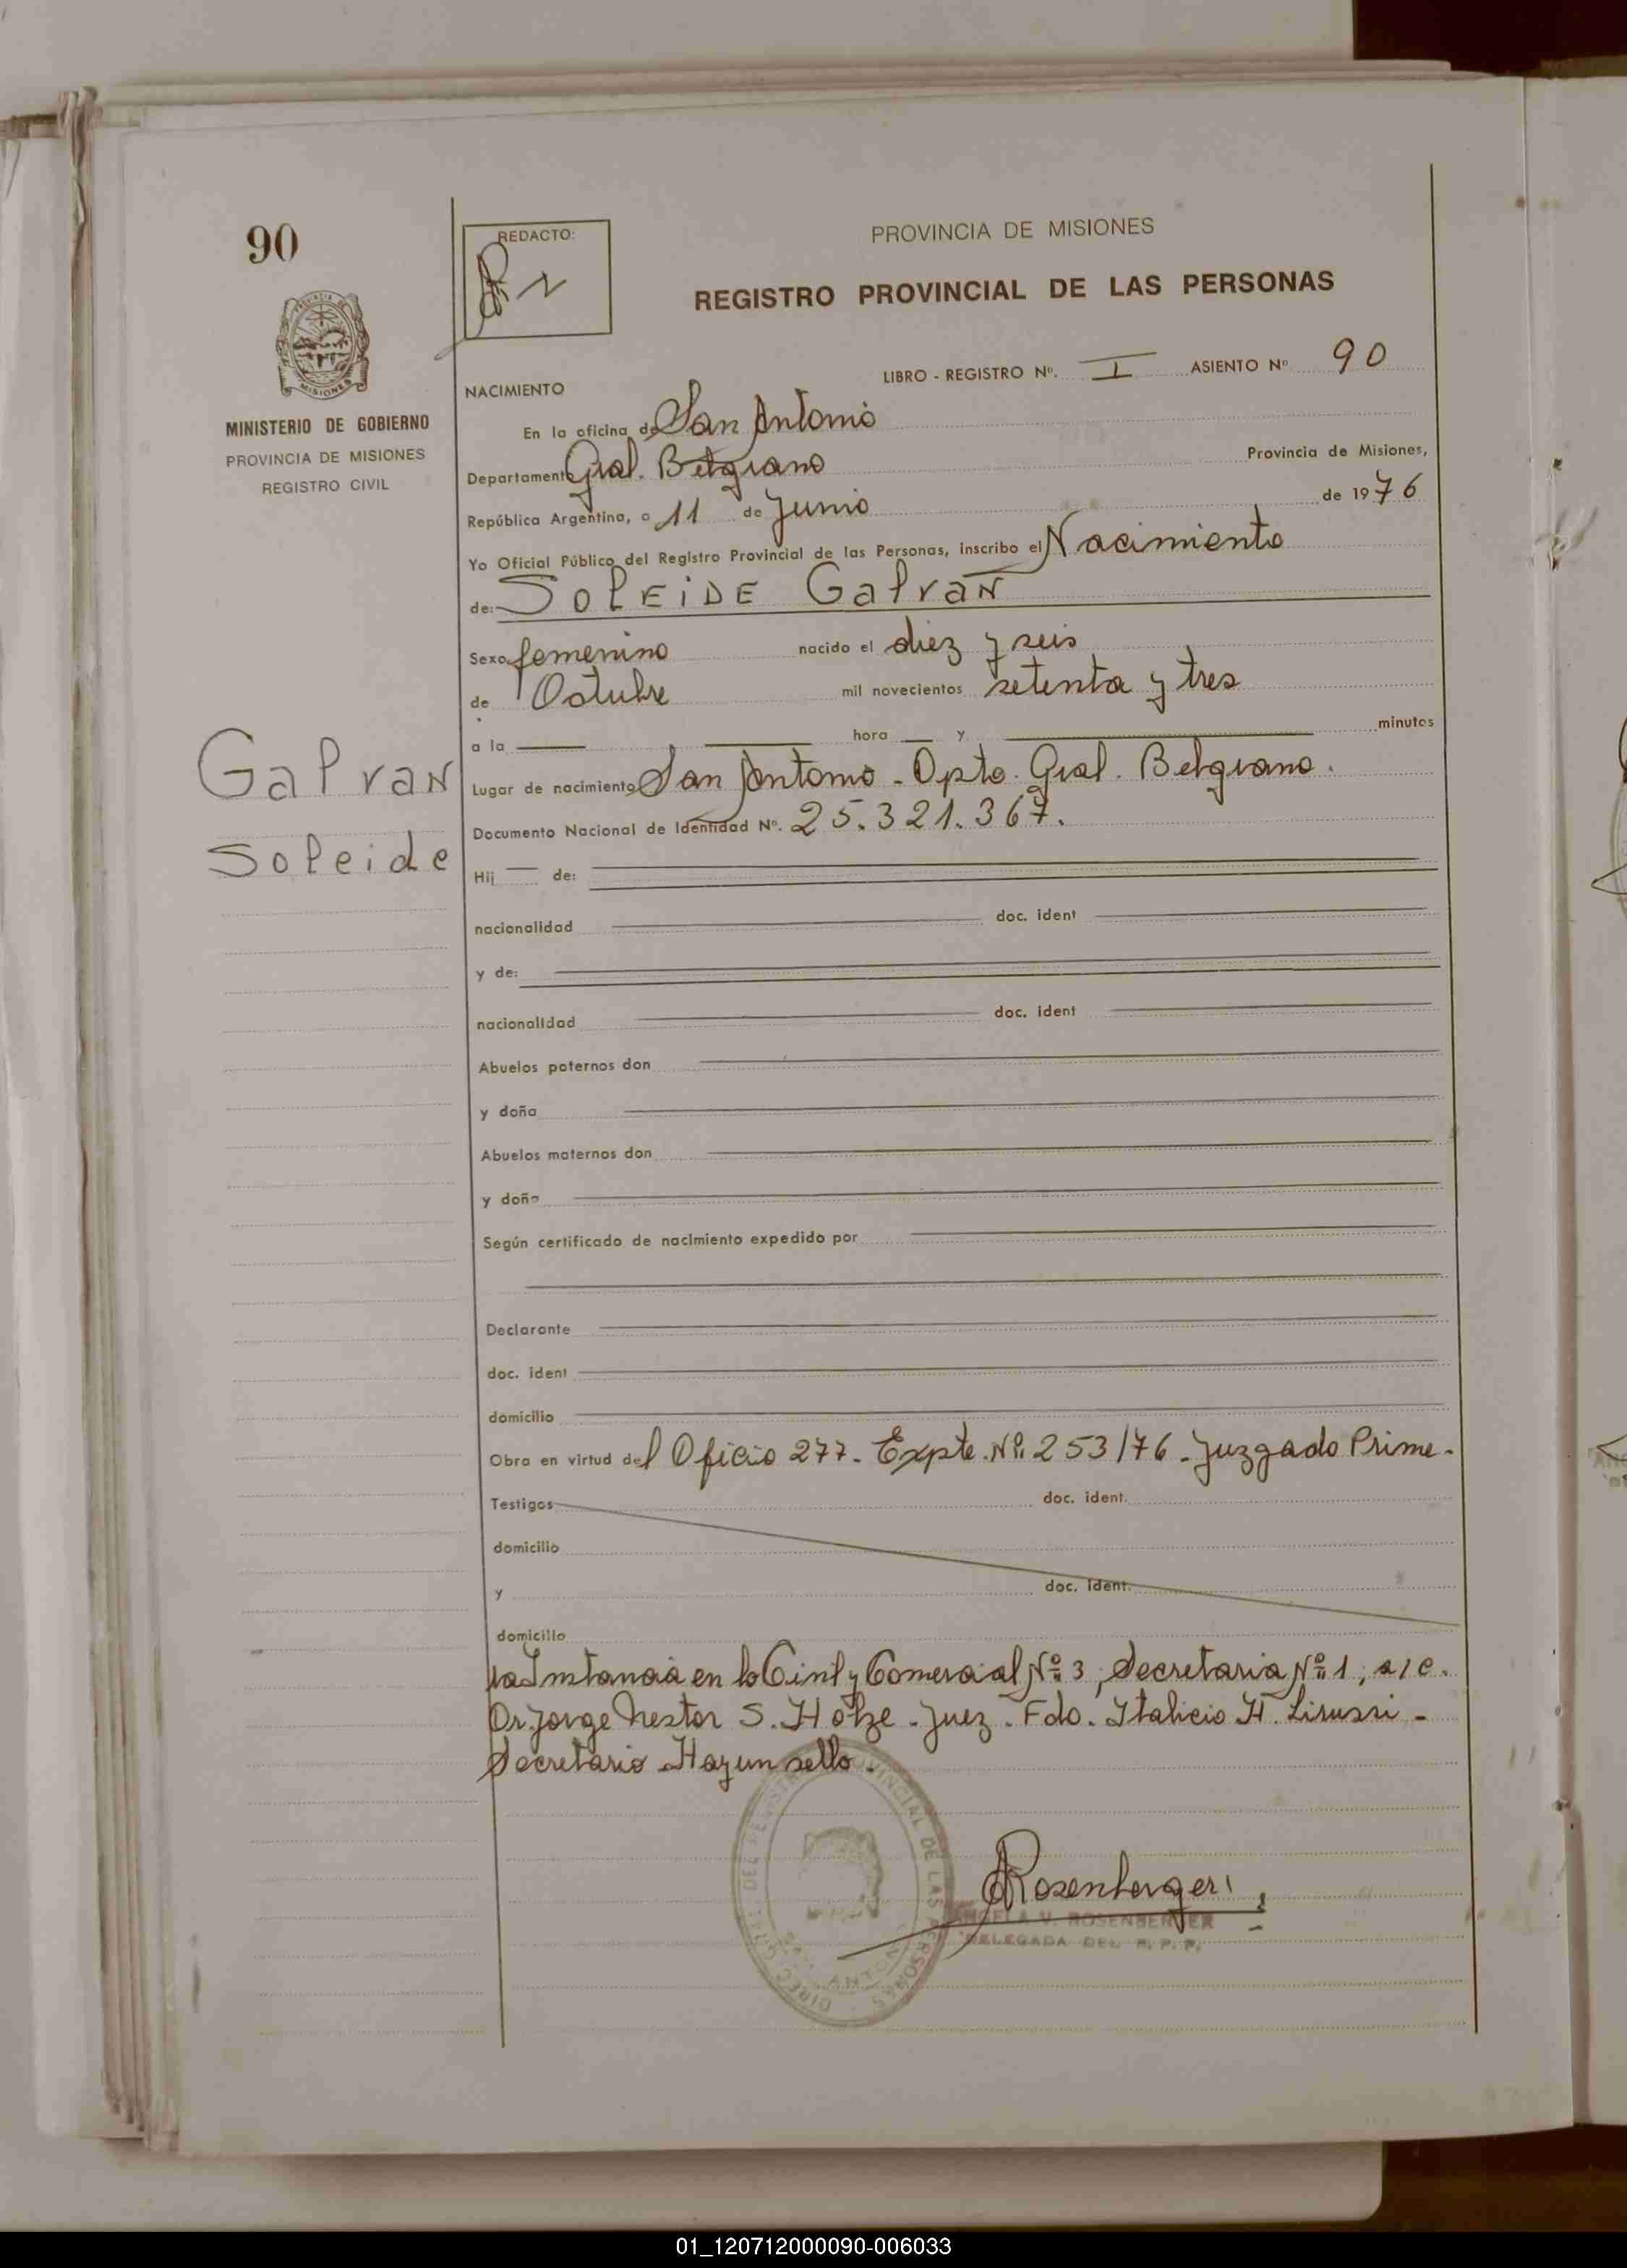 90
REDACTO:
PROVINCIA DE MISIONES
REGISTRO PROVINCIAL DE LAS PERSONAS
MISIONES
MINISTERIO DE GOBIERNO
PROVINCIA DE MISIONES
REGISTRO CIVIL
LIBRO - REGISTRO Nº. I ASIENTO Nº 90
NACIMIENTO
En la oficina de San Antonio
Departamento Gral. Belgrano Provincia de Misiones,
República Argentina, a 11 de Junio de 1976
Yo Oficial Público del Registro Provincial de las Personas, inscribo el Nacimiento
de: SOLEIDE GalvaN
Sexo femenino nacido el diez y seis
de Octubre mil novecientos setenta y tres
a la hora y minutos
GalvaN
Soleide
Lugar de nacimiento San Antonio - Dpto. Gral. Belgrano.
Documento Nacional de Identidad Nº. 25.321.367.
Hij de:
nacionalidad doc. ident
y de:
nacionalidad doc. ident
Abuelos paternos don
y doña
Abuelos maternos don
y doña
Según certificado de nacimiento expedido por
Declarante
doc. ident
domicilio
Obra en virtud del Oficio 277 - Expte. Nº 253/76 - Juzgado Prime-
Testigos doc. ident.
domicilio
y doc. ident.
domicilio
ra Instancia en lo Civil y Comercial Nº 3, Secretaria Nº 1, a/c.
Dr. Jorge Nestor S. - Juez - Fdo. Italicio H. Lirussi -
Secretario - Hay un sello -
DIREC. GRAL. DEL REGISTRO PROVINCIAL DE LAS PERSONAS
SAN ANTONIO
ARosenberger
ANGELA V. ROSENBERGER
DELEGADA DEL R. P. P.
01_120712000090-006033